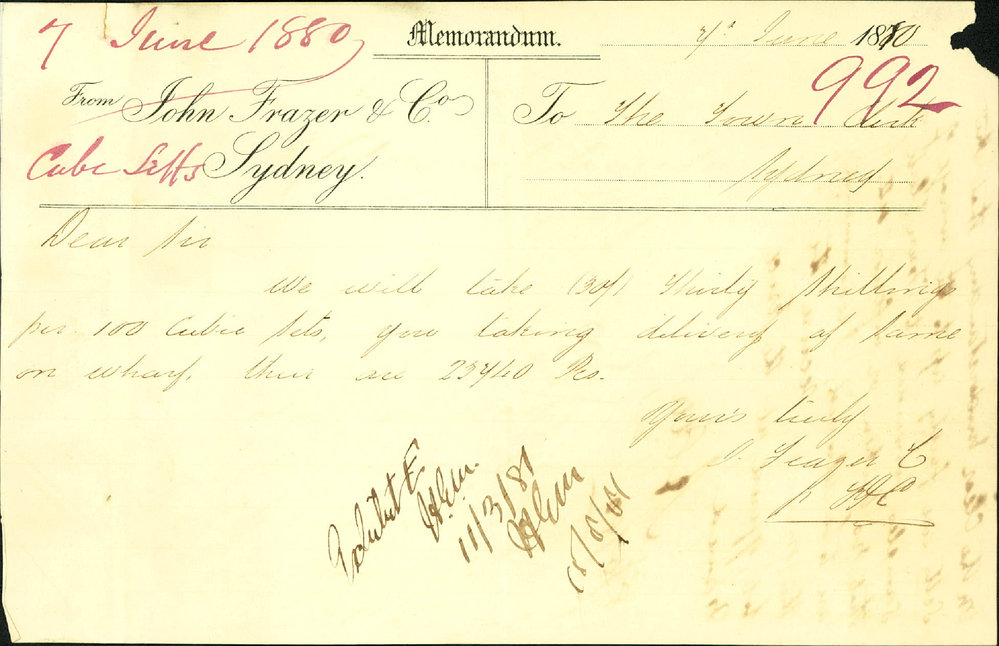 7 June 1880
Memorandum.
7th June 1880
992
From John Frazer & Co
Cube Setts Sydney.
To The Town Clerk
Sydney
Dear Sir
We will take (30/) Thirty Shillings
per 100 Cubic Sets, you taking delivery of same
on wharf, there are 23740 Pcs.
Yours truly
J. Frazer C
p
Exhibit E
11/3/81